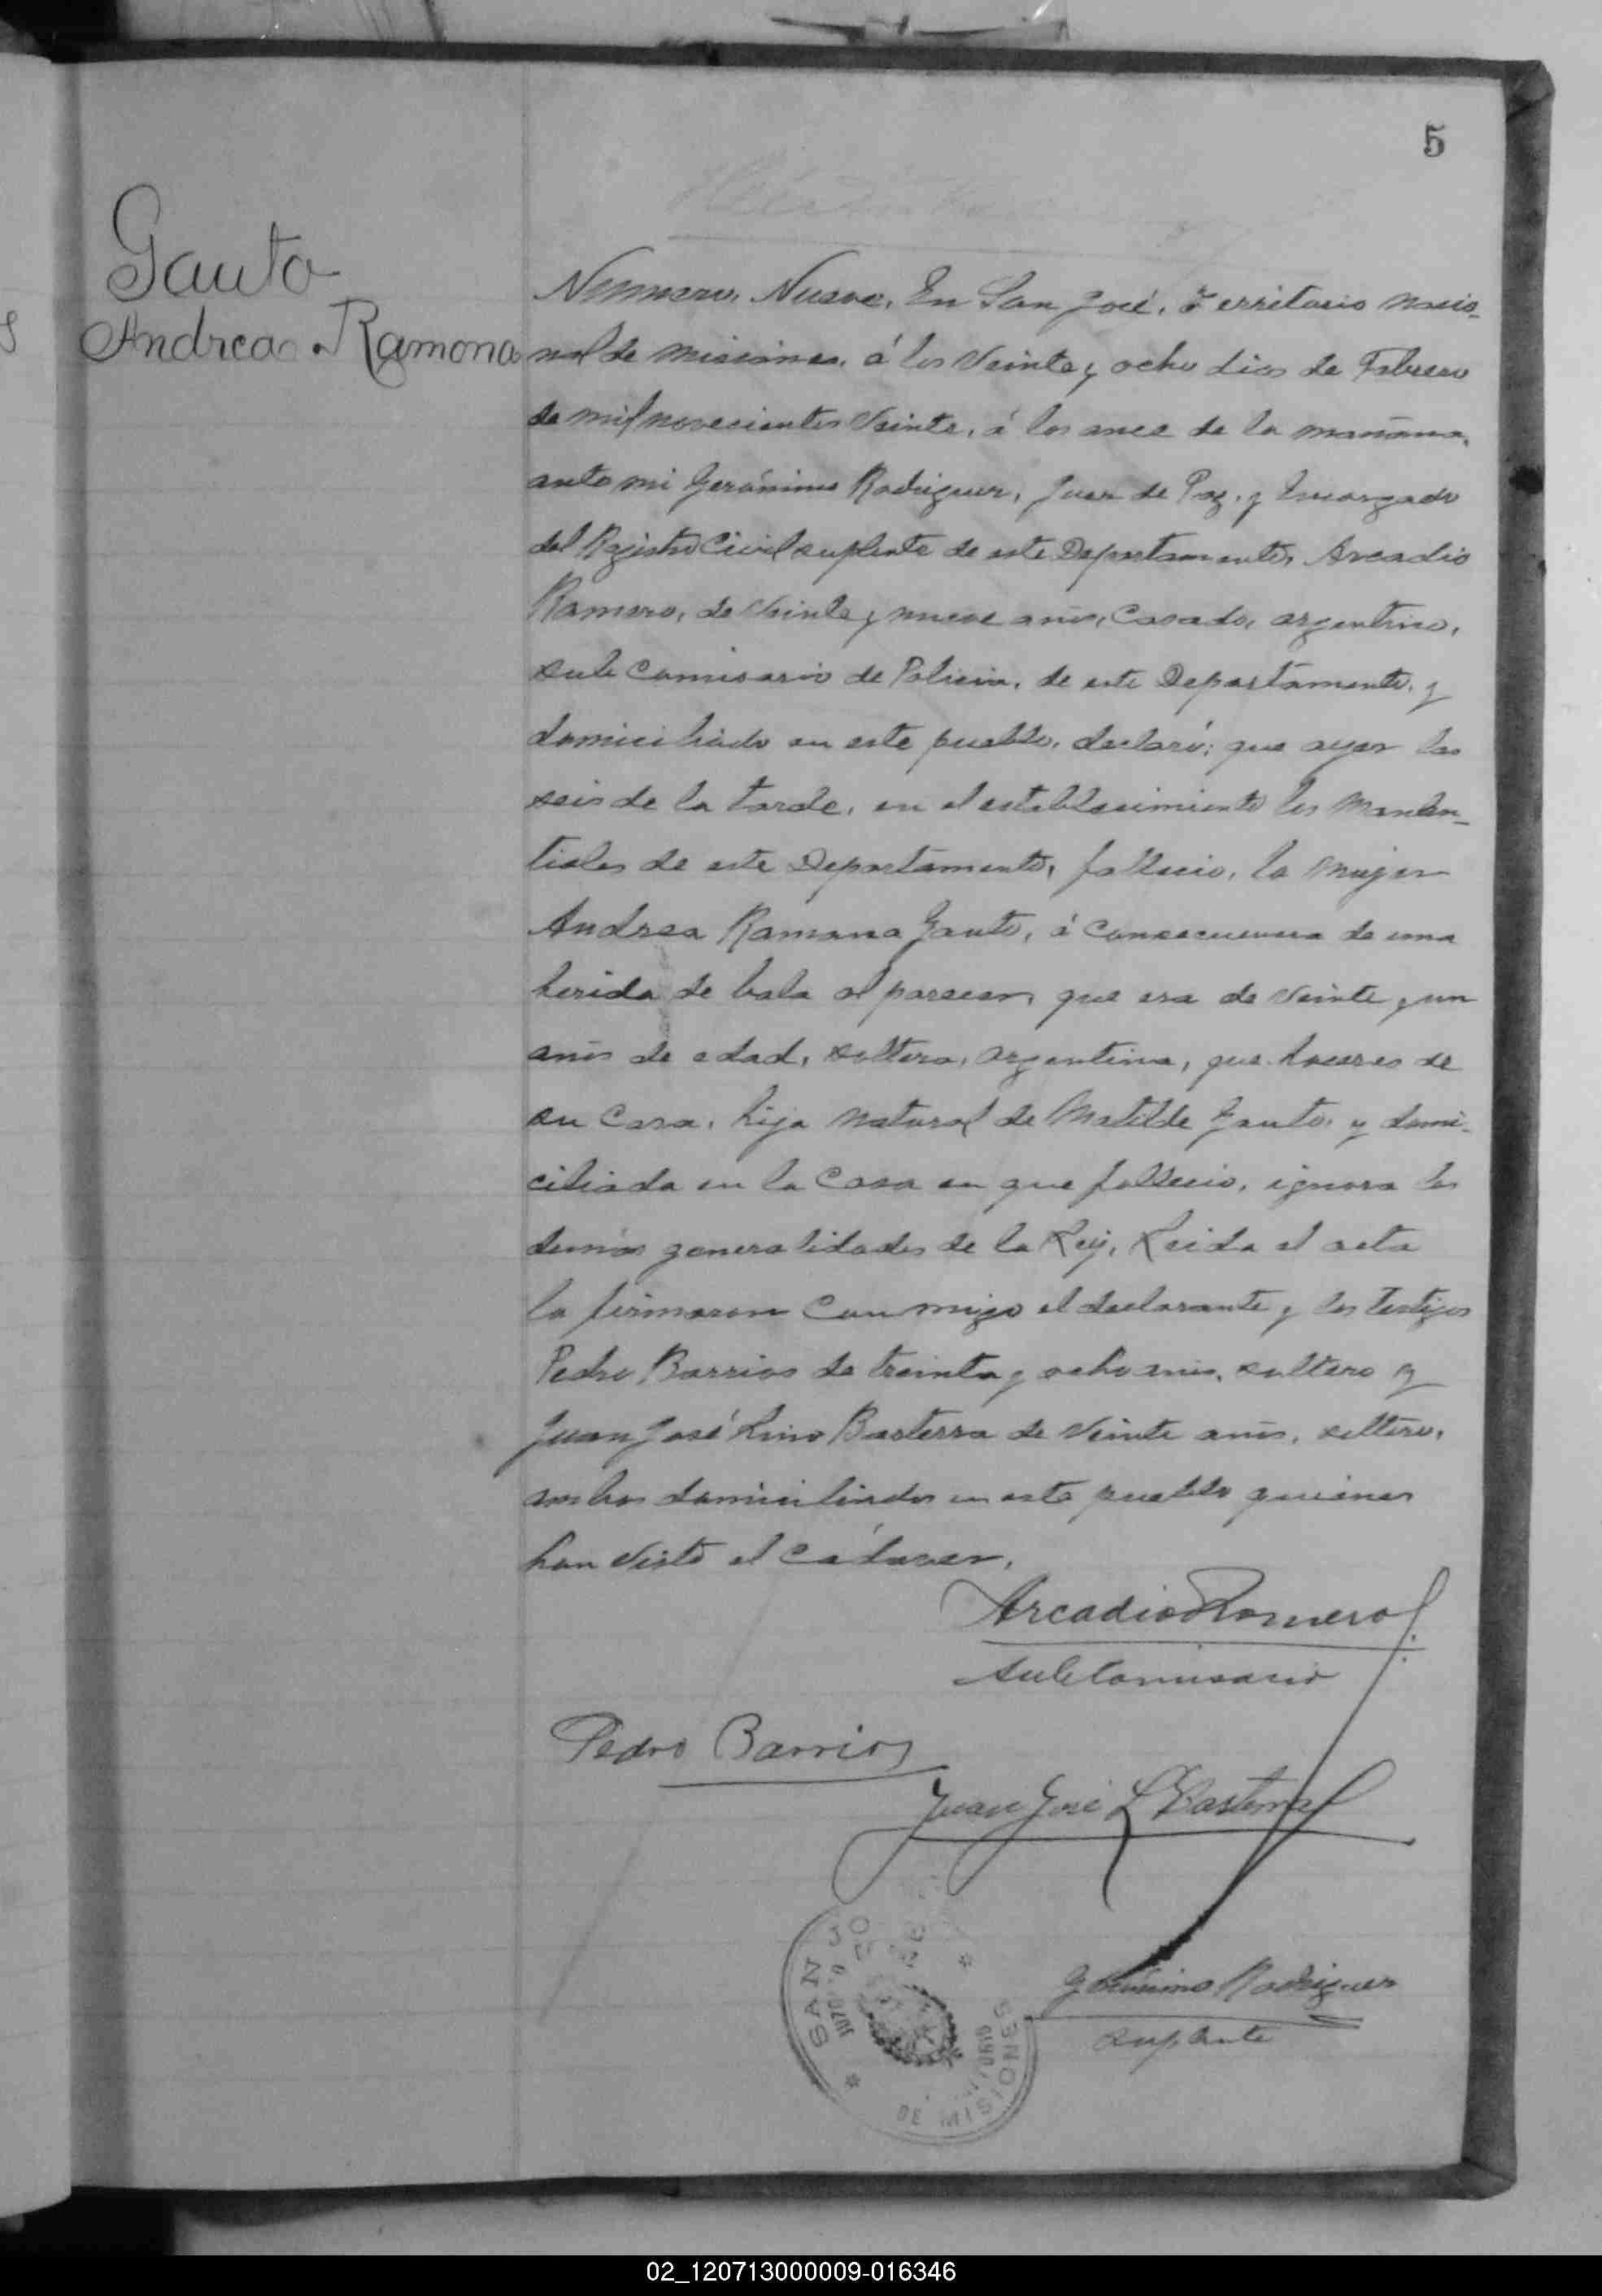 5
Gauto
Andrea Ramona
Numero, Nueve, En San José, Territorio nacio-
nal de misiones, á los Veinte y ocho dias de Febrero
de mil novecientos Veinte, á las once de la mañana,
ante mi Gerónimo Rodriguez, Juez de Paz, y Encargado
del Rejistro Civil suplente de este Departamento, Arcadio
Romero, de Veinte y nueve años, Casado, argentino,
sub Comisario de Policia, de este Departamento, y
domiciliado en este pueblo, declaró; que ayer las
seis de la tarde, en el establecimiento los Manan-
tiales de este Departamento, fallecio, la mujer
Andrea Ramona Gauto, á Consecuencia de una
herida de bala al parecer, que era de Veinte y un
años de edad, soltera, argentina, que haceres de
su Casa, hija natural de Matilde Gauto, y domi-
ciliada en la Casa en que fallecio, ignora las
demás generalidades de la Ley, Leida el acta
la firmaron Con migo el declarante y los testigos
Pedro Barrios de treinta y ocho años, soltero y
Juan José Lino Basterra de Veinte años, soltero,
ambos domiciliados en este pueblo quienes
han Visto el Cadáver.
Arcadio Romero
Sub Comisario
Pedro Barrios
Juan José L Basterra
SAN JOSE
DE MISIONES
Gerónimo Rodriguez
suplente
02_120713000009-016346